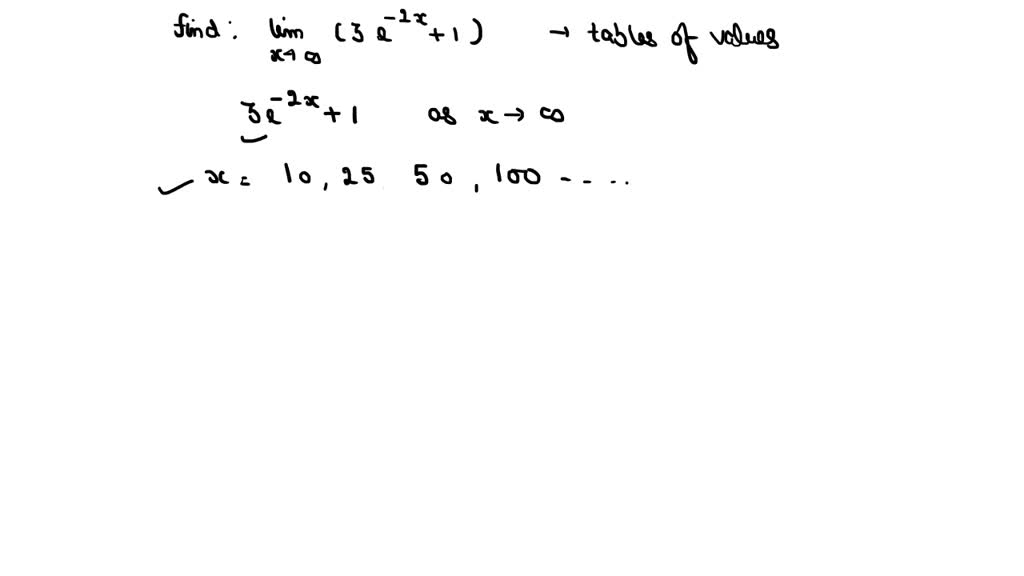 find: lim x→∞ (3e^{-2x}+1) → tables of values
3e^{-2x}+1 as x→∞
x = 10, 25 50, 100 - - ...